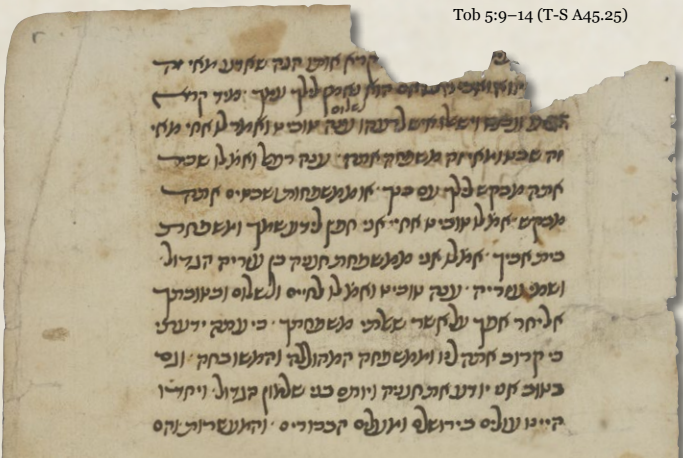 Tob 5:9–14 (T-S A45.25)
קרא אותו הנה שאדע מאי זה
הוא נאמן לילך עמך מיד קרא
לשלום
וישאלו איש לרעהו ענה טוביה ואמר לו אחי מאי
זה שבט ומאי זה משפחה אתה ענה רפאל ואמר לו שכיר
אתה מבקש לילך עם בנך או ממשפחות ושבטים אתה
מבקש אמר לו טוביה אחי אני חפץ לידע שמך ומשפחת
בית אביך אמר לו אני ממשפחת חנניה בן הגדול
ושמי עזריה ענה טוביה ואמר לו לחיים ולשלום ובטובתך
אל יחר אפך על אשר שאלתי משפחתך כי עתה ידעתי
כי קרוב אתה לנו וממשפחה המהוללה והמשובחה וגם
אני יודע את חנניה ויותם בני הגדול ויחדו
היינו עולים בירושלם ומעלים הבכורים והמעשרות והם